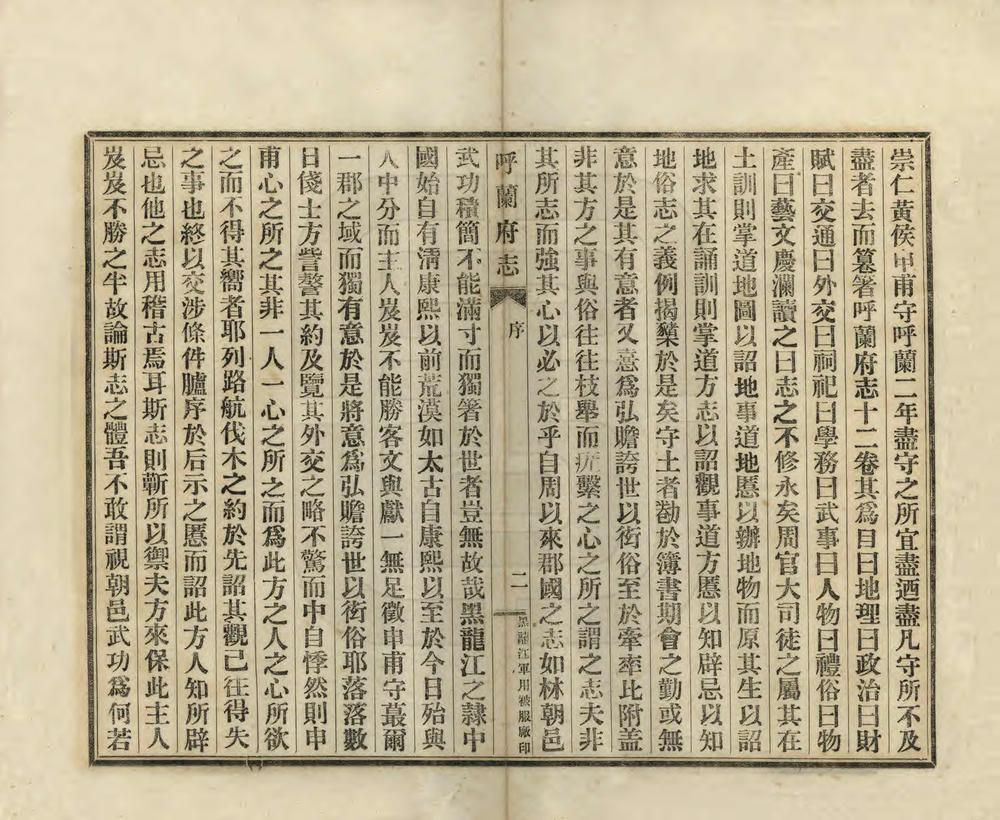 崇仁黃侯申甫守呼蘭二年盡守之所宜盡迺盡凡守所不及
盡者去而纂箸呼蘭府志十二卷其爲目曰地理曰政治曰財
賦曰交通曰外交曰祠祀曰學務曰武事曰人物曰禮俗曰物
產曰藝文慶瀾讀之曰志之不修永矣周官大司徒之屬其在
土訓則掌道地圖以詔地事道地慝以辦地物而原其生以詔
地求其在誦訓則掌道方志以詔觀事道方慝以知辟忌以知
地俗志之義例揭櫫於是矣守土者勩於簿書期會之勤或無
意於是其有意者又憙爲弘贍誇世以衒俗至於牽率比附蓋
非其方之事與俗往往枝舉而疣繫之心之所之謂之志夫非
其所志而強其心以必之於乎自周以來郡國之志如林朝邑
呼蘭府志
序
二
黑龍江軍用被服廠印
武功積簡不能滿寸而獨箸於世者豈無故哉黑龍江之隸中
國始自有清康熙以前荒漠如太古自康熙以至於今日殆與
人中分而主人岌岌不能勝客文與獻一無足徵申甫守蕞爾
一郡之域而獨有意於是將意爲弘贍誇世以衒俗耶落落數
日俴士方訾謷其約及覽其外交之略不驚而中自悸然則申
甫心之所之其非一人一心之所之而爲此方之人之心所欲
之而不得其嚮者耶列路航伐木之約於先詔其觀已往得失
之事也終以交涉條件臚序於后示之慝而詔此方人知所辟
忌也他之志用稽古焉耳斯志則蘄所以禦夫方來保此主人
岌岌不勝之半故論斯志之體吾不敢謂視朝邑武功爲何若